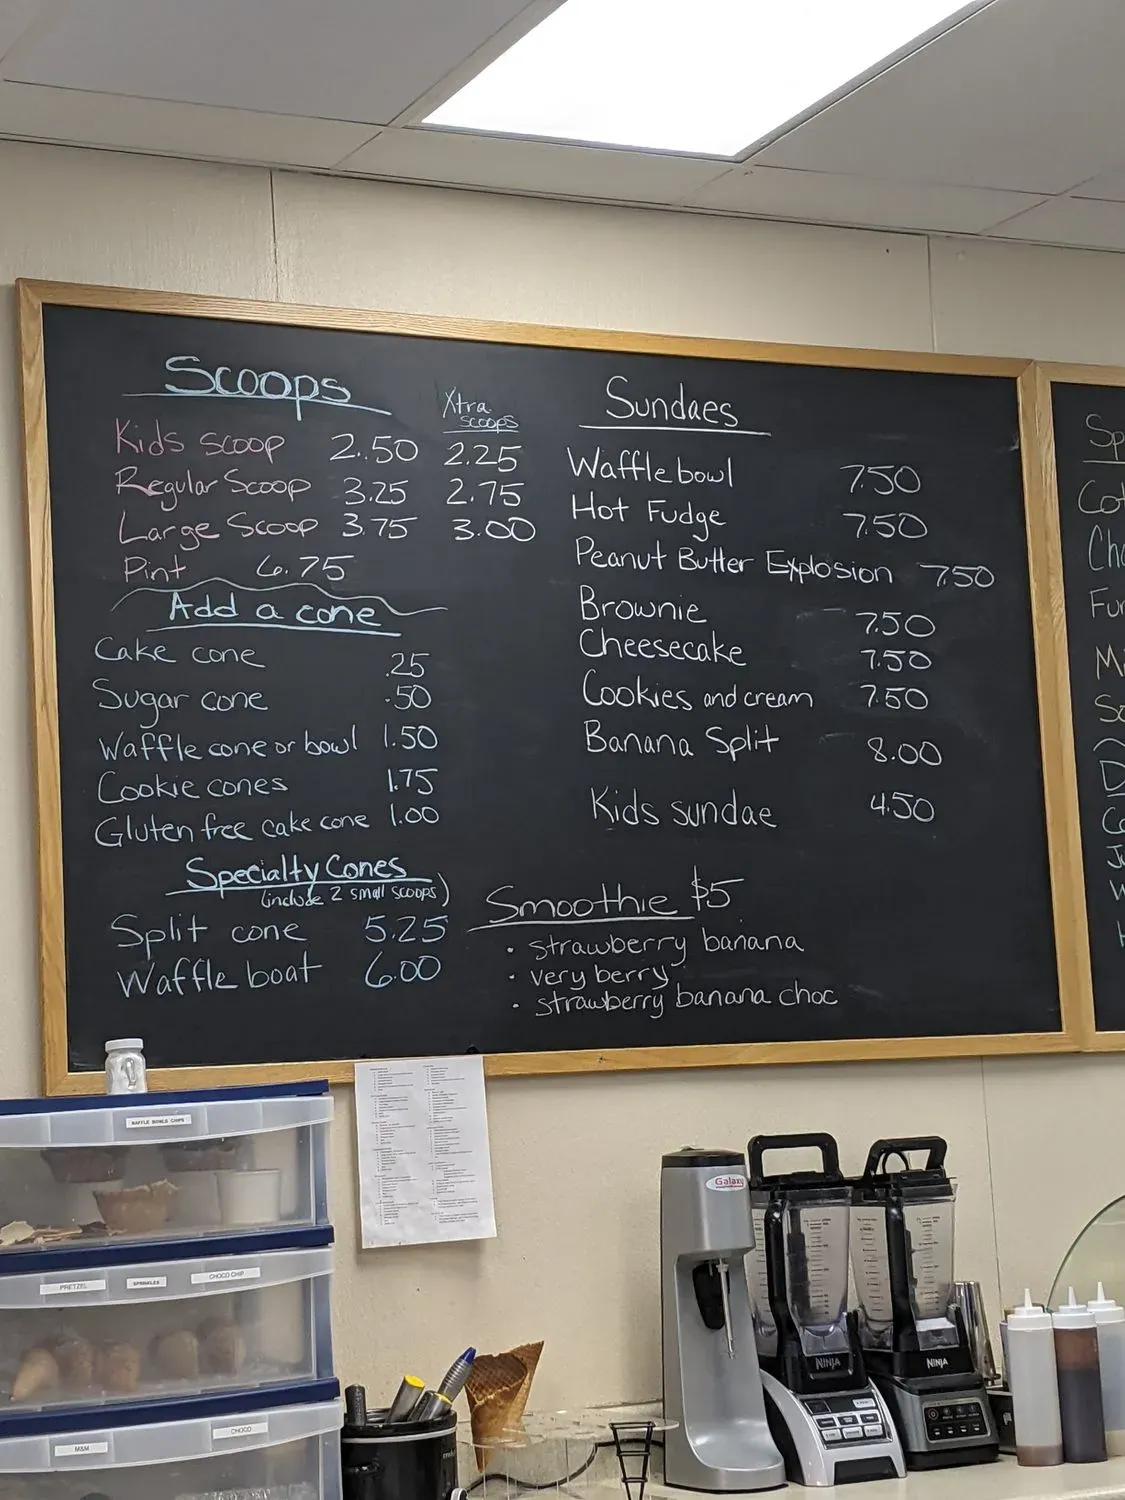 Scoops
Xtra scoops
Kids scoop 2.50 2.25
Regular Scoop 3.25 2.75
Large Scoop 3.75 3.00
Pint 6.75
Add a cone
Cake cone .25
Sugar cone .50
Waffle cone or bowl 1.50
Cookie cones 1.75
Gluten free cake cone 1.00
Specialty Cones
(include 2 small scoops)
Split cone 5.25
Waffle boat 6.00
Sundaes
Waffle bowl 7.50
Hot Fudge 7.50
Peanut Butter Explosion 7.50
Brownie 7.50
Cheesecake 7.50
Cookies and cream 7.50
Banana Split 8.00
Kids sundae 4.50
Smoothie $5
• strawberry banana
• very berry
• strawberry banana choc
WAFFLE BOWLS CHIPS
PRETZEL
SPRINKLES
CHOCO CHIP
M&M
CHOCO
Galaxy
NINJA
NINJA